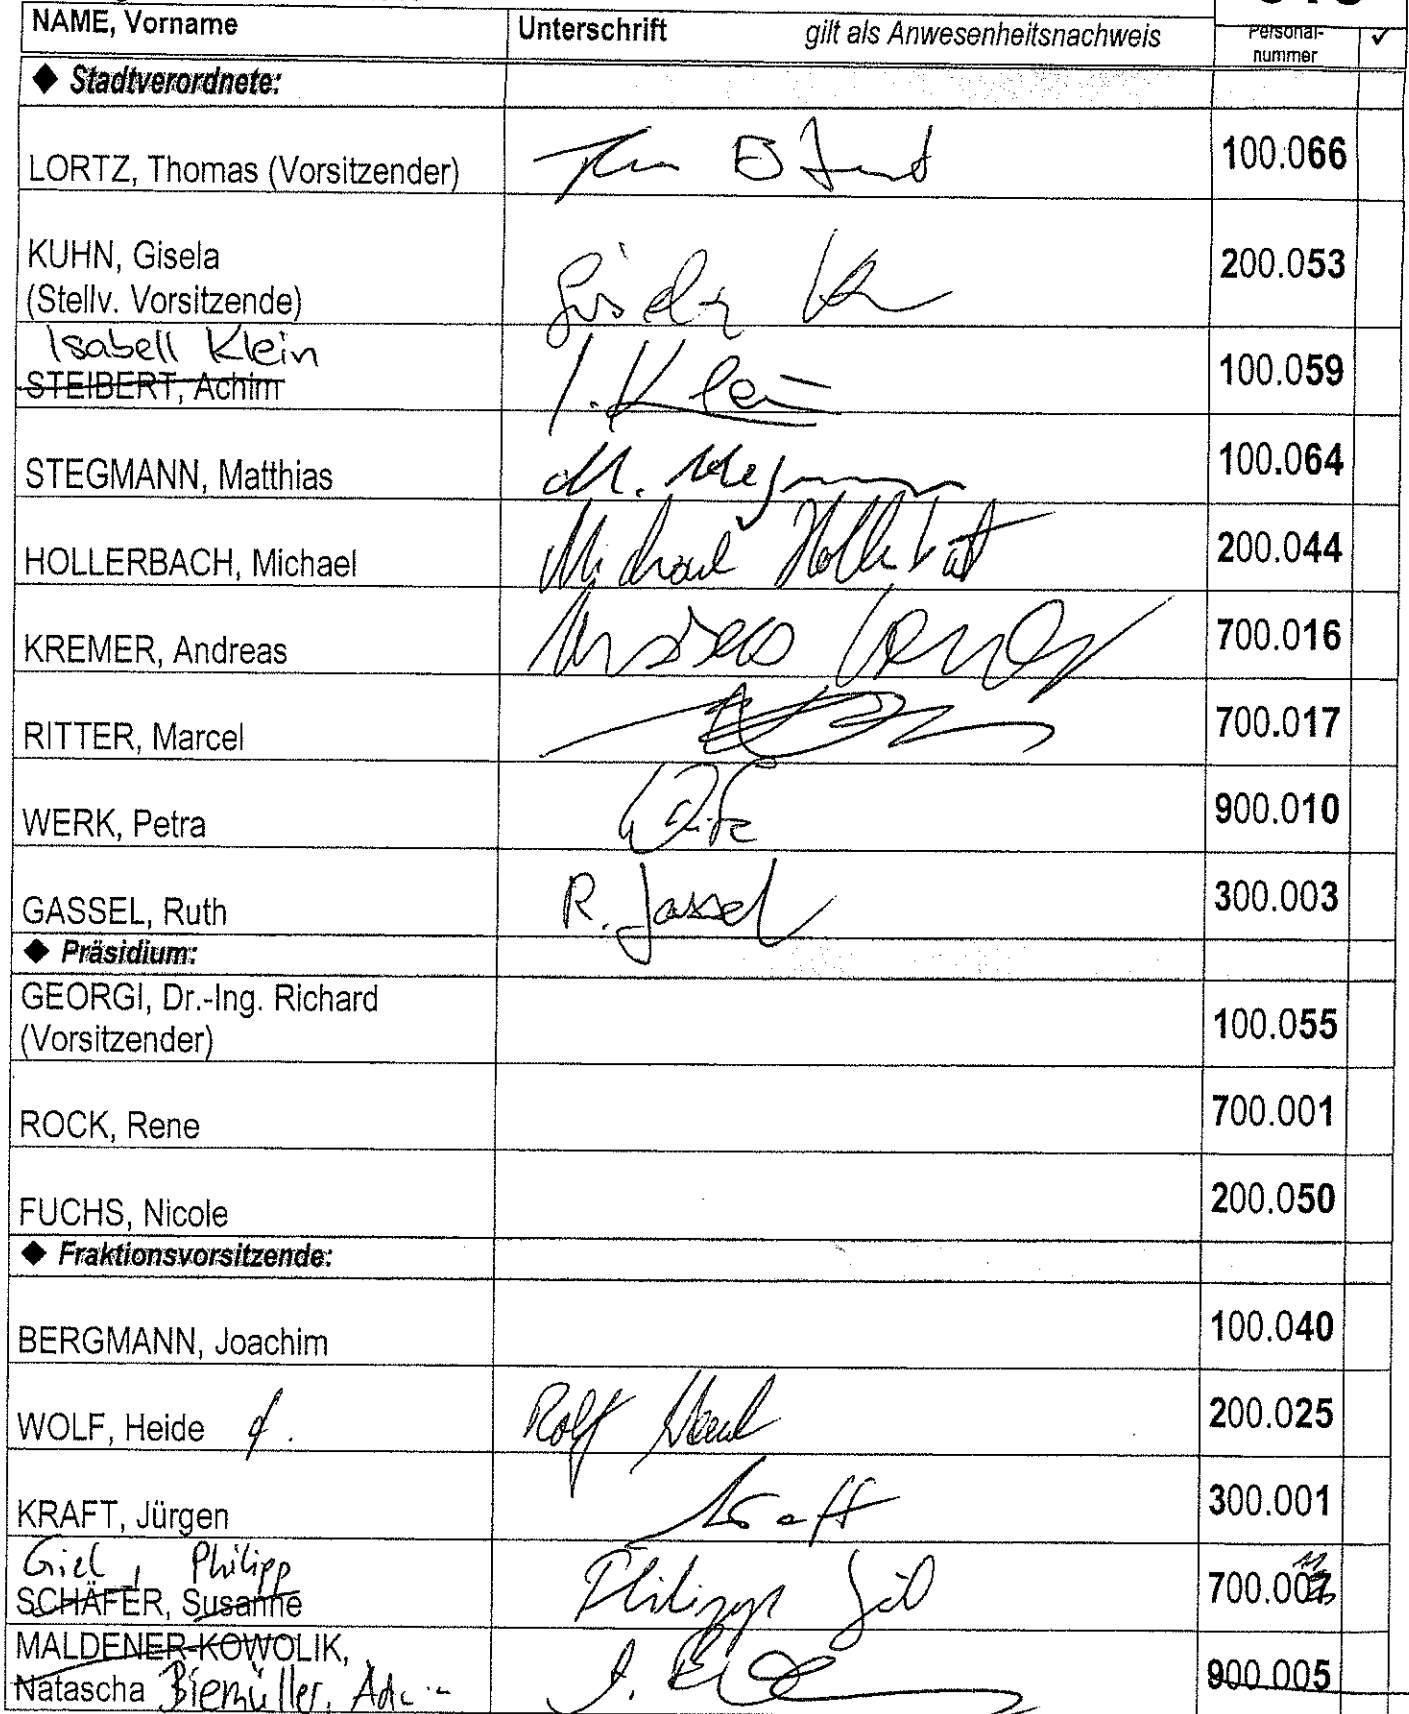 NAME, Vorname Unterschrift gilt als Anwesenheitsnachweis Personal-
nummer ✓
◆ Stadtverordnete:
LORTZ, Thomas (Vorsitzender) 100.066
KUHN, Gisela
(Stellv. Vorsitzende) Gisela 200.053
Isabell Klein
STEIBERT, Achim I. Klein 100.059
STEGMANN, Matthias M. Stegmann 100.064
HOLLERBACH, Michael Michael Hollerbach 200.044
KREMER, Andreas Andreas Kremer 700.016
RITTER, Marcel 700.017
WERK, Petra 900.010
GASSEL, Ruth R. Gassel 300.003
◆ Präsidium:
GEORGI, Dr.-Ing. Richard
(Vorsitzender) 100.055
ROCK, Rene 700.001
FUCHS, Nicole 200.050
◆ Fraktionsvorsitzende:
BERGMANN, Joachim 100.040
WOLF, Heide Rolf 200.025
KRAFT, Jürgen Kraft 300.001
Giel, Philipp
SCHÄFER, Susanne Philipp Giel 700.0
MALDENER-KOWOLIK,
Natascha Biemüller, 900.005